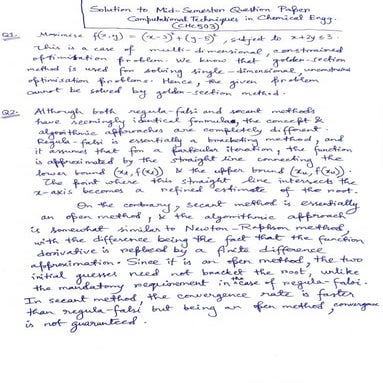 Solution to Mid-Semester Question Paper
Computational Techniques in Chemical Engg.
(CHC503)
Q1. Maximise f(x,y) = (x-3)² + (y-5)², subject to x+2y≤3.
This is a case of multi-dimensional, constrained
optimisation problem. We know that golden-section
method is used for solving single-dimensional, unconstrained
optimisation problems. Hence, the given problem
cannot be solved by golden-section method.
Q2. Although both regula-falsi and secant methods
have seemingly identical formulae, the concept &
algorithmic approaches are completely different.
Regula-falsi is essentially a bracketing method, and
it assumes that for a particular iteration, the function
is approximated by the straight line connecting the
lower bound (xₗ, f(xₗ)) & the upper bound (xᵤ, f(xᵤ)).
The point where this straight line intersects the
x-axis becomes a refined estimate of the root.
On the contrary, secant method is essentially
an open method, & the algorithmic approach
is somewhat similar to Newton-Raphson method,
with the difference being the fact that the function
derivative is replaced by a finite difference
approximation. Since it is an open method, the two
initial guesses need not bracket the root, unlike
the mandatory requirement in the case of regula-falsi.
In secant method, the convergence rate is faster
than regula-falsi but being an open method, convergence
is not guaranteed.